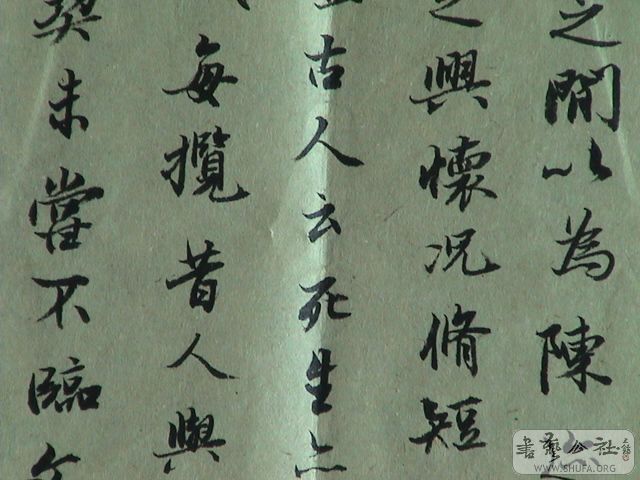 之閒以為陳
之興懷况脩短
古人云死生亦
每攬昔人興
契未嘗不臨
書藝公社
WWW.SHUFA.ORG